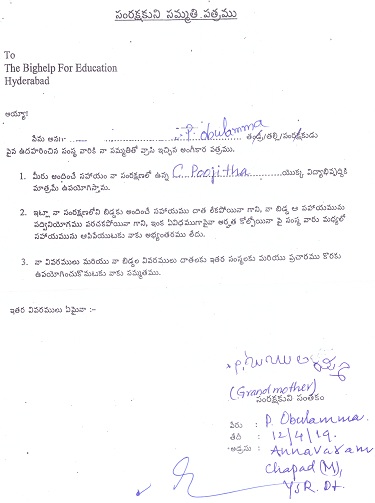 సంరక్షకుని సమ్మతి పత్రము
To
The Bighelp For Education
Hyderabad
అయ్యా!
పేరు అను:- ........ :- P. obulamma తండ్రి/తల్లి/సంరక్షకుడు
పైన ఉదహరించిన సంస్థ వారికి నా సమ్మతితో వ్రాసి ఇచ్చిన అంగీకార పత్రము.
1. మీరు అందించే సహాయం నా సంరక్షణలో ఉన్న C. Poojitha యొక్క విద్యాభివృద్ధికి
మాత్రమే ఉపయోగిస్తాను.
2. ఇట్లా నా సంరక్షణలోని బిడ్డకు అందించే సహాయము దాత లేకపోయినా గాని, నా బిడ్డ ఆ సహాయమును
సద్వినియోగము పరచకపోయినా గాని, ఇంక ఏవిధముగానైనా అర్హత కోల్పోయినా పై సంస్థ వారు మధ్యలో
సహాయమును ఆపివేయుటకు నాకు అభ్యంతరము లేదు.
3. నా వివరములు మరియు నా బిడ్డల వివరములు దాతలకు ఇతర సంస్థలకు మరియు ప్రచారము కొరకు
ఉపయోగించుకొనుటకు నాకు సమ్మతము.
ఇతర వివరములు ఏమైనా :-
(Grandmother)
సంరక్షకుని సంతకం
పేరు : P. Obulamma.
తేదీ : 12/4/19.
అడ్రసు : Annavaram
Chapad (M),
YSR Dt.